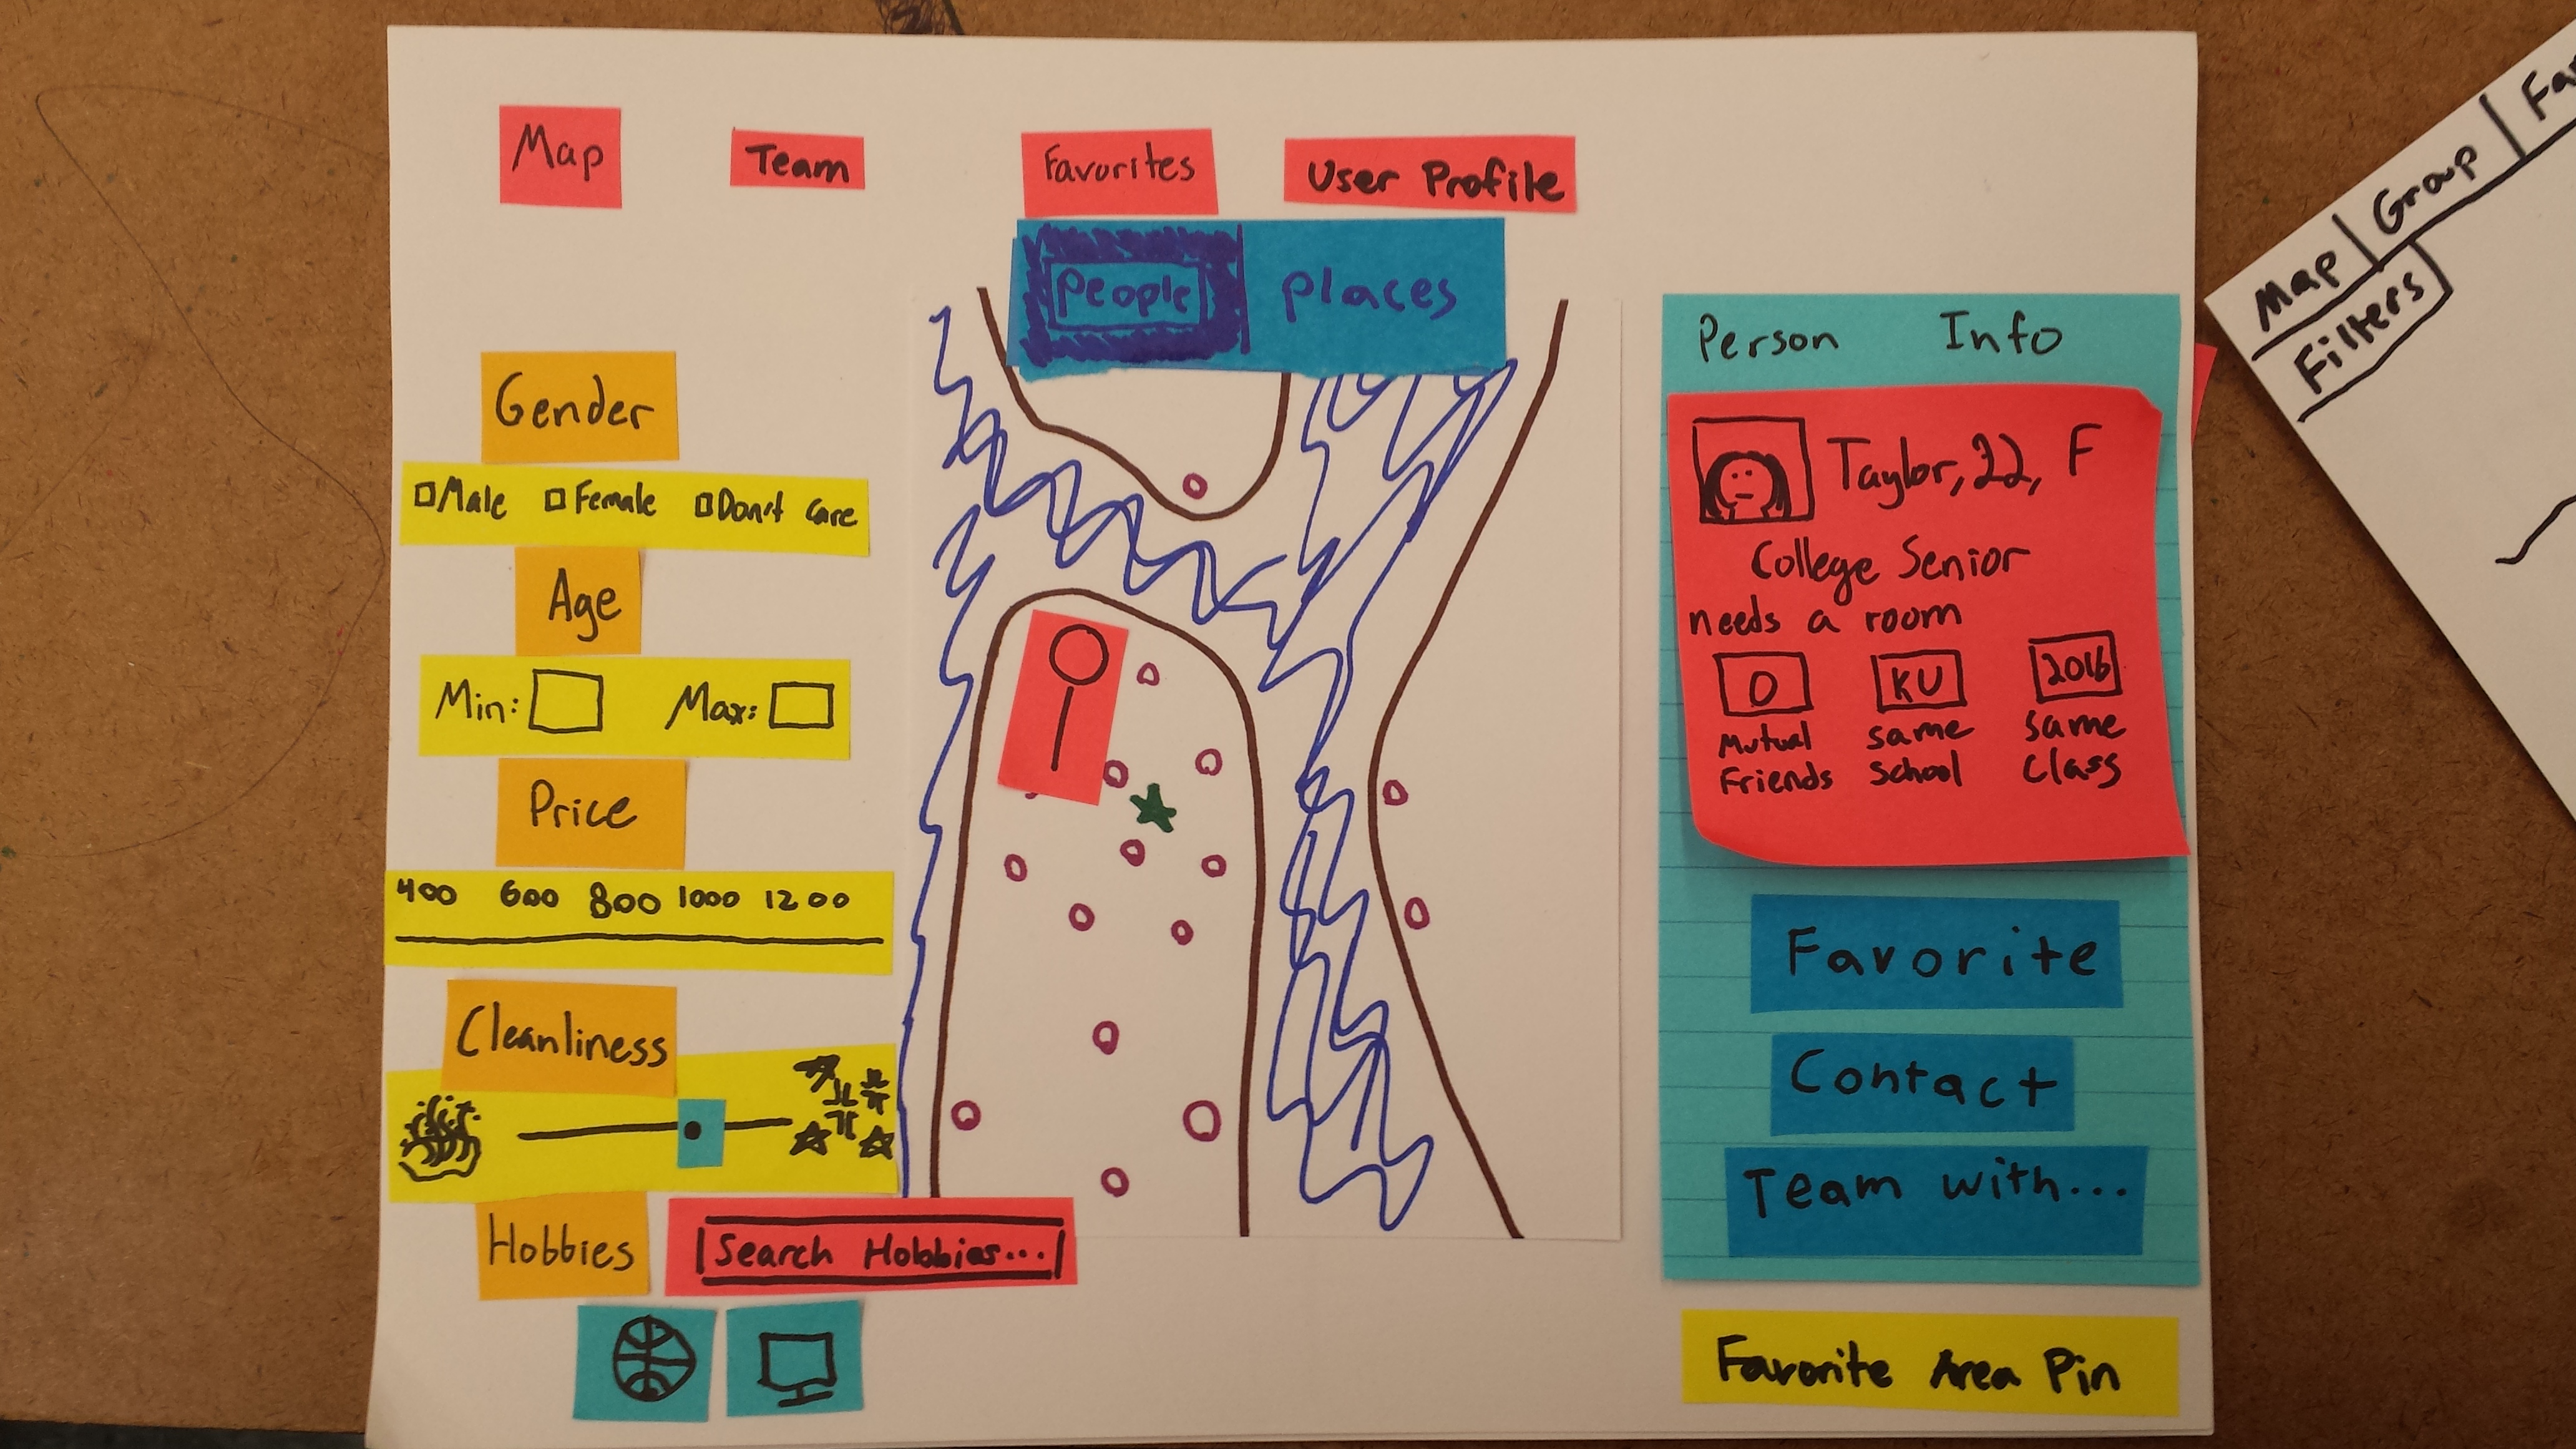 Map Team Favorites User Profile
People places
Gender
Male Female Don't Care
Age
Min: Max:
Price
400 600 800 1000 1200
Cleanliness
Hobbies Search Hobbies...
Person Info
Taylor, 22, F
College Senior
needs a room
0 KU 2016
Mutual same same
Friends School Class
Favorite
Contact
Team with...
Favorite Area Pin
Map Group
Filters